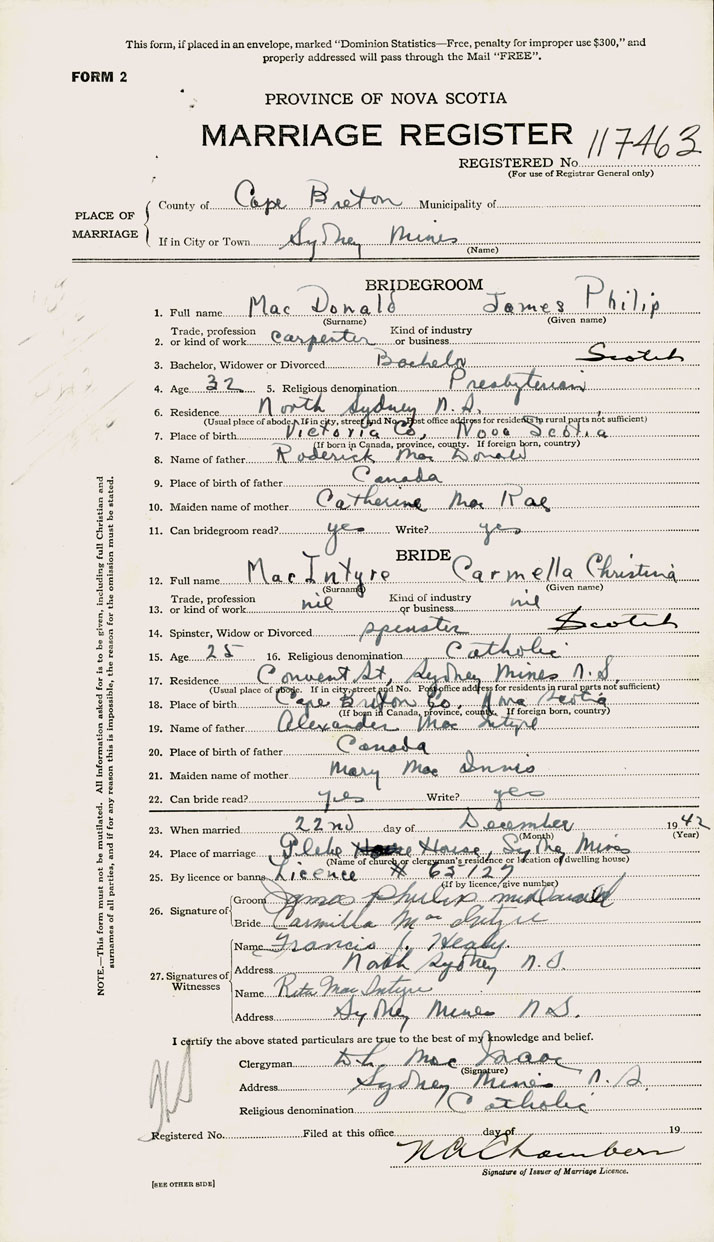 This form, if placed in an envelope, marked "Dominion Statistics—Free, penalty for improper use $300," and
properly addressed will pass through the Mail "FREE".
FORM 2
PROVINCE OF NOVA SCOTIA
MARRIAGE REGISTER
REGISTERED No. 117463
(For use of Registrar General only)
PLACE OF MARRIAGE
County of Cape Breton Municipality of
If in City or Town Sydney Mines
(Name)
BRIDEGROOM
1. Full name Mac Donald James Philip
(Surname) (Given name)
2. Trade, profession or kind of work carpenter Kind of industry or business
3. Bachelor, Widower or Divorced Bachelor Scotch
4. Age 32 5. Religious denomination Presbyterian
6. Residence North Sydney N.S.
(Usual place of abode. If in city, street and No. Post office address for residents in rural parts not sufficient)
7. Place of birth Victoria Co, Nova Scotia
(If born in Canada, province, county. If foreign born, country)
8. Name of father Roderick Mac Donald
9. Place of birth of father Canada
10. Maiden name of mother Catherine Mac Rae
11. Can bridegroom read? yes Write? yes
BRIDE
12. Full name MacIntyre Carmella Christina
(Surname) (Given name)
13. Trade, profession or kind of work nil Kind of industry or business nil
14. Spinster, Widow or Divorced spinster Scotch
15. Age 25 16. Religious denomination Catholic
17. Residence Convent St, Sydney Mines N.S.
(Usual place of abode. If in city, street and No. Post office address for residents in rural parts not sufficient)
18. Place of birth Cape Breton Co, Nova Scotia
(If born in Canada, province, county. If foreign born, country)
19. Name of father Alexander Mac Intyre
20. Place of birth of father Canada
21. Maiden name of mother Mary Mac Innis
22. Can bride read? yes Write? yes
23. When married 22nd day of December 1942
(Month) (Year)
24. Place of marriage Glebe House, Sydney Mines
(Name of church or clergyman's residence or location of dwelling house)
25. By licence or banns Licence # 65127
(If by licence, give number)
26. Signature of
Groom James Philip
Bride Carmella MacIntyre
27. Signatures of Witnesses
Name Francis J. Healy.
Address North Sydney N.S.
Name Rita MacIntyre
Address Sydney Mines N.S.
I certify the above stated particulars are true to the best of my knowledge and belief.
Clergyman Mac Isaac
(Signature)
Address Sydney Mines N.S.
Religious denomination Catholic
Registered No. Filed at this office day of 19
Chambers
Signature of Issuer of Marriage Licence.
[SEE OTHER SIDE]
NOTE.—This form must not be mutilated. All Information asked for is to be given, including full Christian and
surnames of all parties, and if for any reason this is impossible, the reason for the omission must be stated.